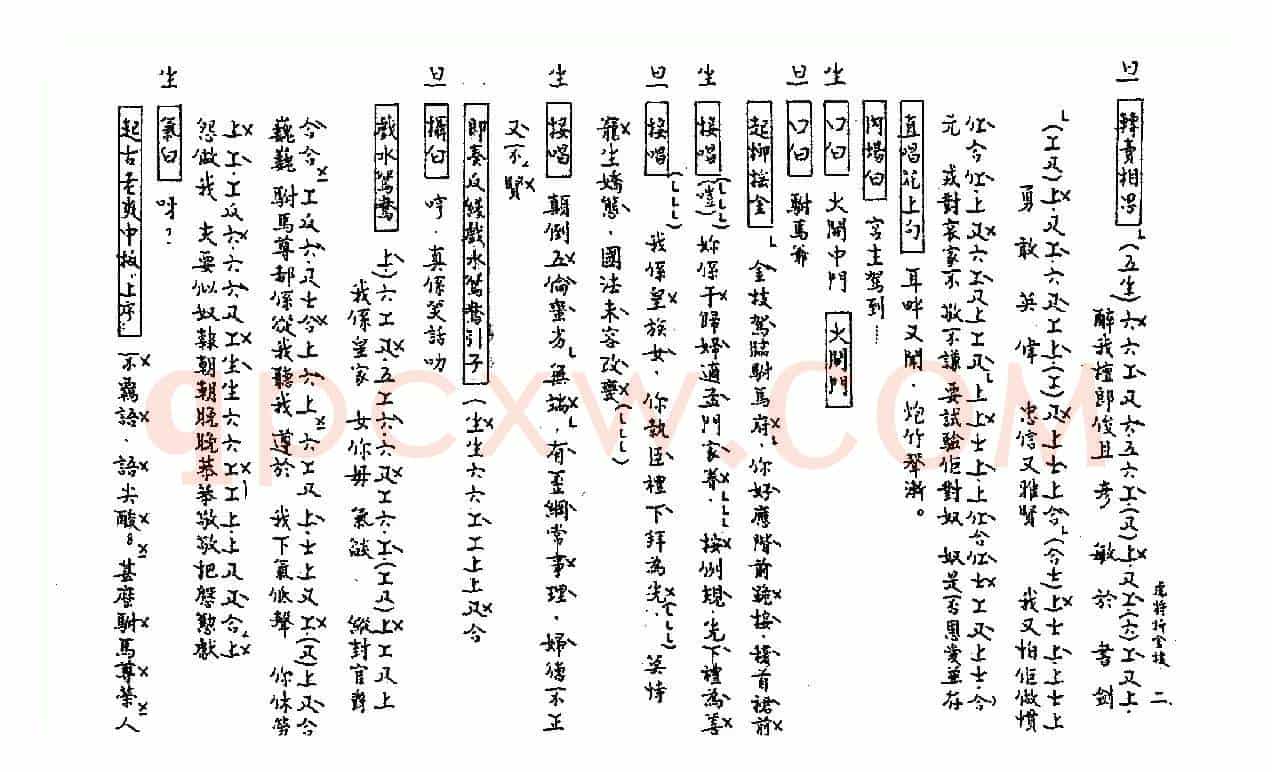 虎將折金枝 二
旦 轉賣相思 (五生)六六工又六五六工(又)上又工(六)工又上
醉我檀郎俊且秀 敏於書劍
(工又)上又工六又工上(工)又上士上合(合士)上士上上士上
勇敢英偉 忠信又雅賢 我又怕佢做慣
仩合仩上又六工又上工又上上士上上仩合仩士工又上士合)
元 或對哀家不敬不謙要試驗佢對奴 奴是否恩愛並存
直唱花上句 耳畔又聞,炮竹聲漸。
內場白 宮主駕到……
生 口白 大開中門 大開門
旦 口白 駙馬爺
起柳搖金 金枝駕臨駙馬府,你好應階前跪接,稽首裙前
生 接唱 (嘻)妳係于歸婦適孟門家眷,按例規先下禮為善
旦 接唱 我係皇族女,你執臣禮下拜為先,莫恃
寵生嬌態,國法未容改變
生 接唱 顛倒五倫棄劣 無端,有歪綱常事理,婦德不正
又不賢
即奏反線戲水鴛鴦引子 (生生六六工工上上又合
旦 攝白 哼,真係笑話叻
戲水鴛鴦 上)六工又五工六六又工六工(工又)上工又上
我係皇家女你毋氣燄 縱封官爵
合合工反六又士合上六上六工又上士上又工(又)上又合
巍巍駙馬尊都係從我聽我遵於我下氣低聲 你休勞
上工工反六六六又工生生六六工工上上又又合上
怨做我夫要似奴隸朝朝晚晚恭恭敬敬把慇懃獻
生 氣白 呀?
起古老爽中板,上序: 不羈語,語尖酸。甚麼駙馬尊榮人